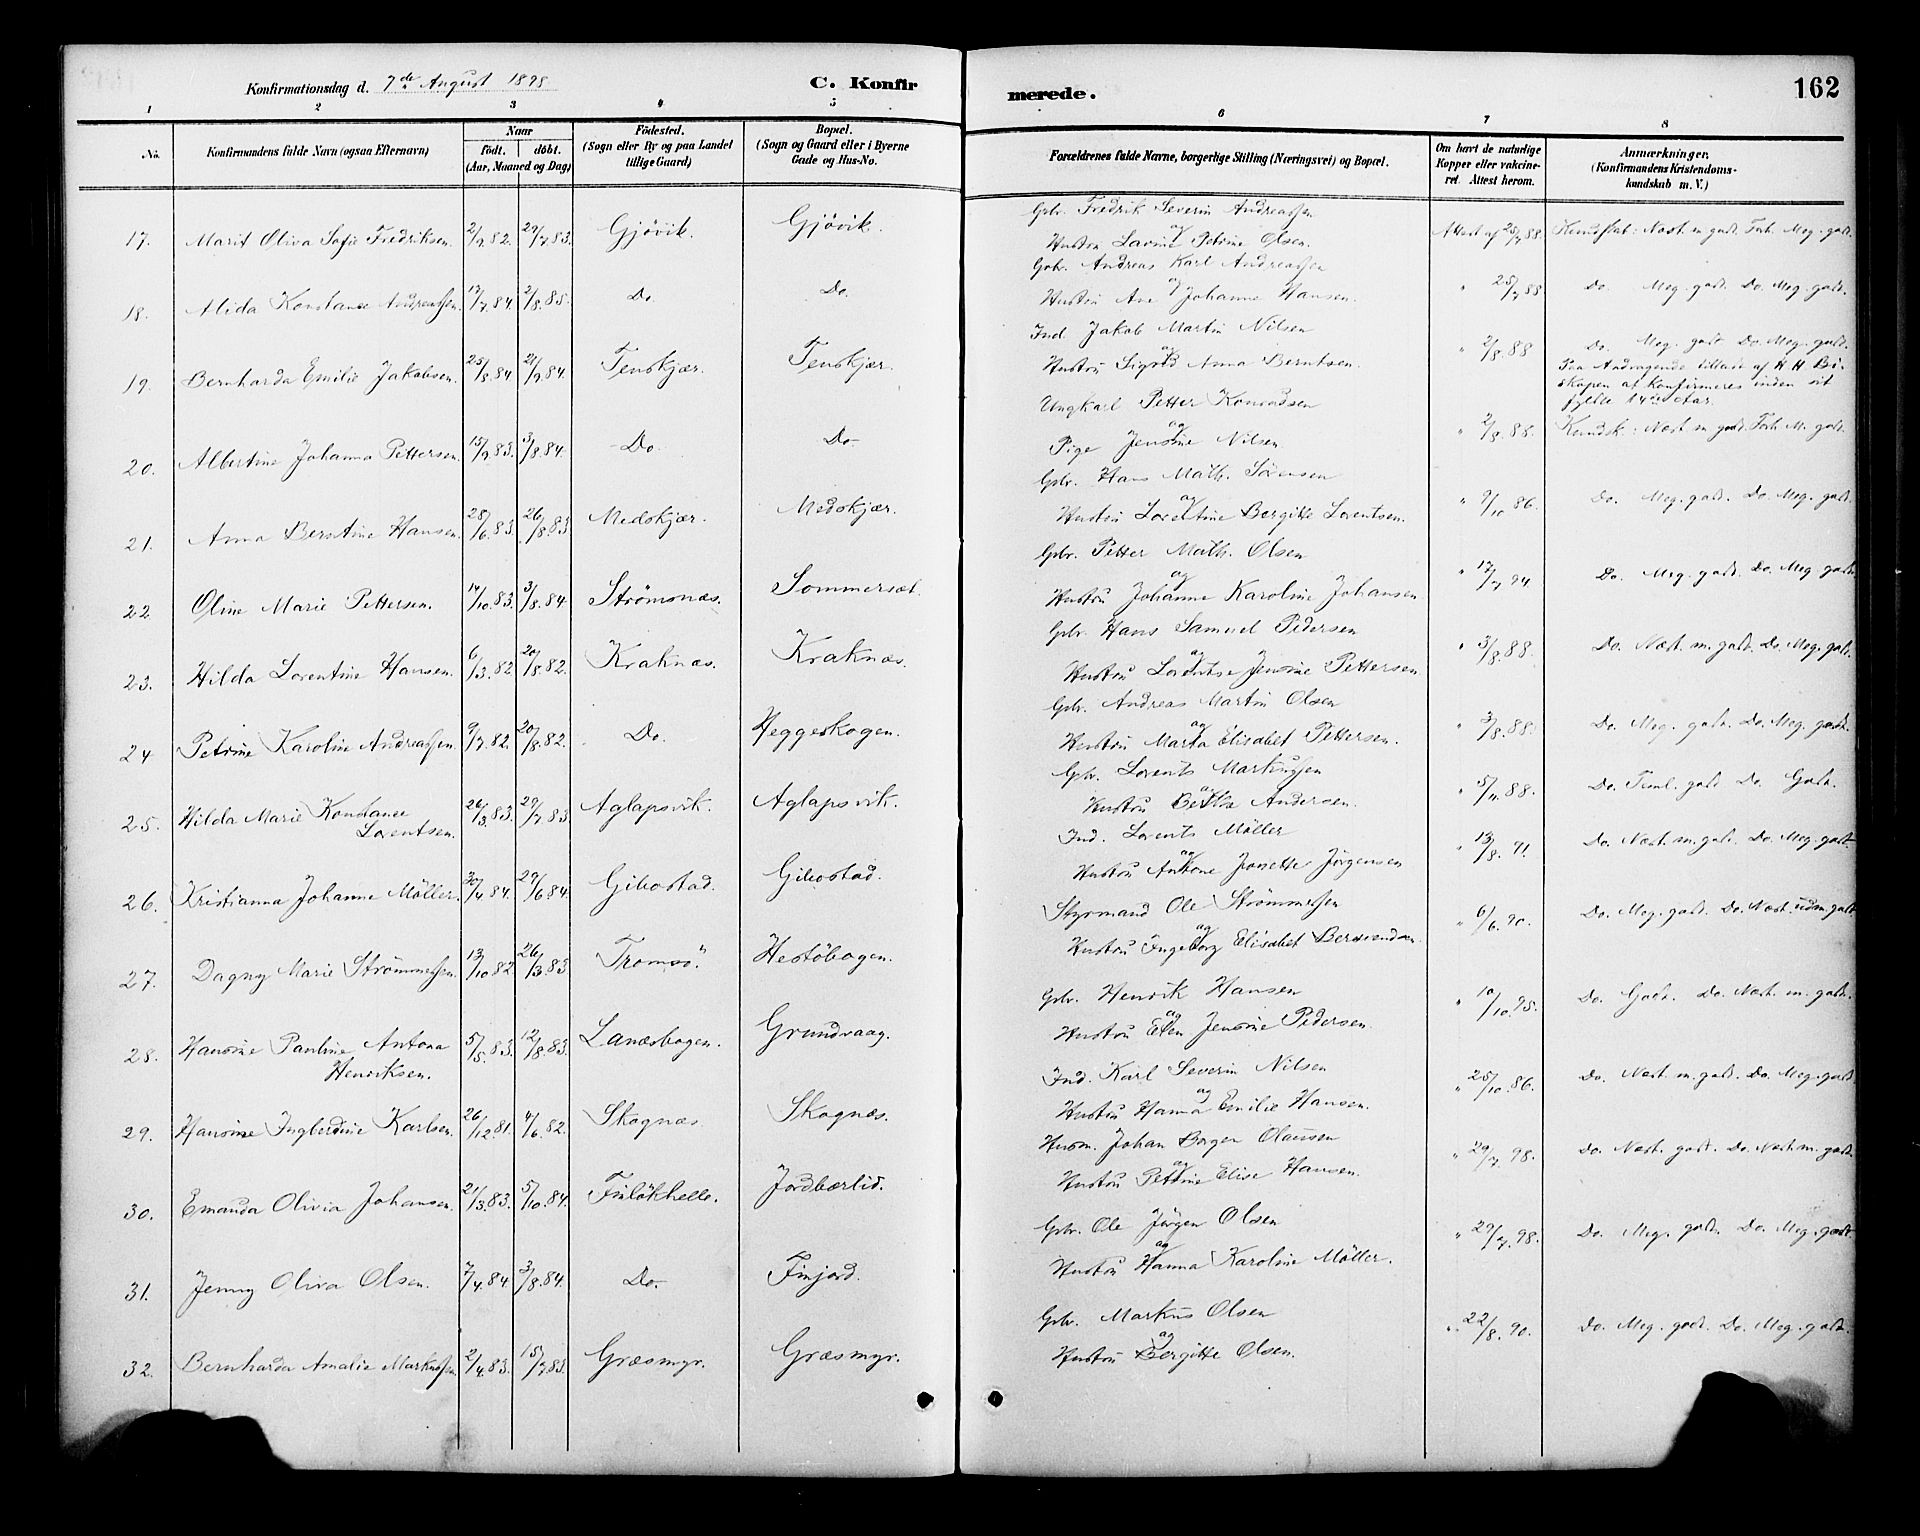 Konfirmationsdag d. 7de August 1898
C. Konfirmerede.
162
1 2 3 4 5 6 7 8
No.
Konfirmandens fulde Navn (ogsaa Efternavn)
Naar
födt. döbt.
(Aar, Maaned og Dag)
Födested.
(Sogn eller By og paa Landet
tillige Gaard)
Bopæl.
(Sogn og Gaard eller i Byerne
Gade og Hus-No.
Forældrenes fulde Navne, borgerlige Stilling (Næringsvei) og Bopæl.
Om havt de naturlige
Kopper eller vakcine-
ret. Attest herom.
Anmærkninger.
(Konfirmandens Kristendoms-
kundskab m. V.)
17. Marit Oliva Sofie Fredriksen. 2/9.82. 29/7.83. Gjövik. Gjövik.
Gbr. Fredrik Severin Andreassen
og
Hustru Lavine Petrine Olsen. Attest af 25/7.88. Kundskab: Næst m. godt. Forh. Meg. godt.
18. Alida Konstance Andreassen. 17/7.84. 2/8.85. Do. Do.
Gbr. Andreas Karl Andreassen
og
Hustru Ane Johanne Hansen. " 25/7.88. Do. Meg. godt. Do. Meg. godt.
19. Bernharda Emilie Jakobsen. 25/8.84. 21/9.84. Tenskjær. Tenskjær.
Ind. Jakob Martin Nilsen
og
Hustru Sigrid Anna Berntsen. " 2/8.88 Do. Meg. godt Do. Meg. godt.
Paa Andragende tilladt af H. H. Bi-
skopen at konfirmeres inden sit
fyldte 14de Aar.
20. Albertine Johanna Pettersen. 15/9.83. 3/8.84. Do. Do
Ungkarl Petter Konradsen
og
Pige Jensine Nilsen " 2/8.88. Kundsk: Næst m godt. Forh. M. godt.
21. Anna Berntine Hansen. 28/6.83. 26/8.83 Medskjær. Medskjær.
Gbr. Hans Math. Sörensen
og
Hustru Lorentine Bergitte Lorentsen. " 9/10.86. Do. Meg. godt. Do. Meg. godt.
22 Oline Marie Pettersen. 14/10.83. 3/8.84. Strömsnæs. Sommersæt.
Gbr. Petter Math. Olsen
og
Hustru Johanne Karoline Johansen " 17/7.94. Do. Meg. godt. Do. Meg. godt.
23. Hilda Lorentine Hansen. 6/3.82 20/8.82. Kraknæs. Kraknæs.
Gbr. Hans Samuel Pedersen
og
Hustru Lorentse Jensine Pettersen " 3/8.88. Do. Næst. m. godt. Do. Meg. godt.
24 Petrine Karoline Andreassen. 9/7.82. 20/8.82. Do. Heggeskogen.
Gbr. Andreas Martin Olsen
og
Hustru Marta Elisabet Pettersen. " 3/8.88. Do. Meg. godt. Do. Meg. godt.
25. Hilda Marie Konstance
Lorentsen. 26/3.83. 29/7.83. Aglapsvik. Aglapsvik.
Gbr. Lorents Markussen
og
Hustru Andersen. " 5/11.88. Do. Teml. godt Do. Godt.
26. Kristianna Johanne Möller. 30/4.84. 29/6.84. Gibostad. Gibostad.
Ind. Lorents Möller
og
Hustru Antone Janette Jörgensen " 13/8.91. Do. Næst. m. godt. Do. Meg. godt.
27. Dagny Marie Strömmesen. 13/10.82 26/3.83 Tromsö. Hestöbogen.
Styrmand Ole Strömmesen
og
Hustru Ingeborg Elisabet Berdvendsen " 6/6.90. Do. Meg. godt. Do. Næst. udm. godt.
28. Hansine Pauline Antona
Henriksen. 5/5.83. 12/8.83. Lanæsbogen. Grundvaag.
Gbr. Henrik Hansen
og
Hustru Elen Jensine Pedersen. " 10/10.95. Do. Godt. Do. Næst. m. godt.
29. Hansine Ingberdine Karlsen. 26/12.81. 4/6.82. Skognæs. Skognæs.
Ind. Karl Severin Nilsen
og
Hustru Hanna Emilie Hansen. " 25/10.86. Do. Næst. m. godt. Do. Meg. godt.
30. Emanda Olivia Johansen. 21/3.83. 5/10.84. Finlökhelle. Jordbærlid.
Husm. Johan Borger Olaussen
og
Hustru Petrine Elise Hansen. " 29/7.98. Do. Næst. godt. Do. Næst m. godt.
31. Jenny Oliva Olsen. 7/4.84. 3/8.84. Do. Finjord.
Gbr. Ole Jörgen Olsen
og
Hustru Hanna Karoline Möller. " 29/7.98. Do. Meg. godt. Do. Meg. godt.
32. Bernharda Amalie Markussen. 2/4.83. 15/7.83. Græsmyr. Græsmyr.
Gbr. Markus Olsen
og
Hustru Bergitte Olsen. " 22/8.90. Do. Meg. godt. Do. Meg. godt.